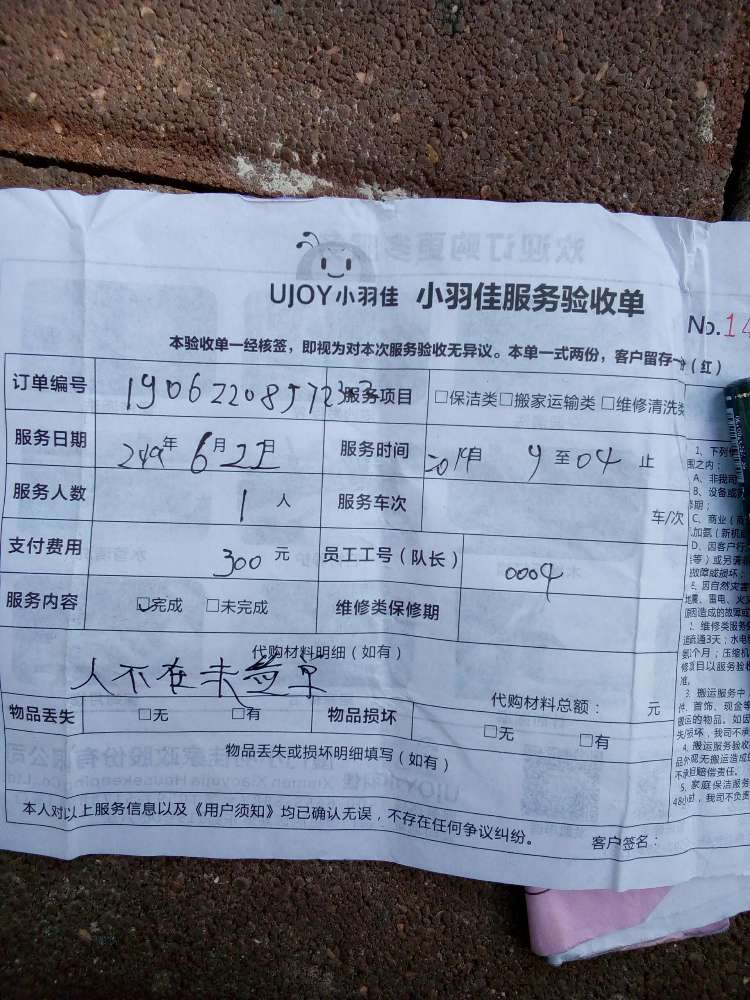 UJOY小羽佳 小羽佳服务验收单
No.14
本验收单一经核签，即视为对本次服务验收无异议。本单一式两份，客户留存一份（红）
订单编号 190622085723 服务项目 □保洁类□搬家运输类 □维修清洗类
服务日期 2019年 6月22日 服务时间 9 至 04 止
服务人数 1 人 服务车次 车/次
支付费用 300 元 员工工号（队长） 0004
服务内容 ☑完成 □未完成 维修类保修期
代购材料明细（如有）
人不在未签单
代购材料总额： 元
物品丢失 □无 □有 物品损坏 □无 □有
物品丢失或损坏明细填写（如有）
本人对以上服务信息以及《用户须知》均已确认无误，不存在任何争议纠纷。 客户签名：
1、下列
围之内：
A、非我司
B、设备或
修期；
C、商业（
D、因客户行
等）或另请
故障或损坏
地震、雷电、火
因造成的故障或
2、维修类服务
疏通3天；水电
个月；压缩机
修项目以服务验收
准。
3、搬运服务中
件、首饰、现金等
搬运的物品。如因
失/损坏，我司不承
4、搬运服务验收
品外观无搬运造成的
不承担赔偿责任。
5、家庭保洁服务
48小时，我司不负责